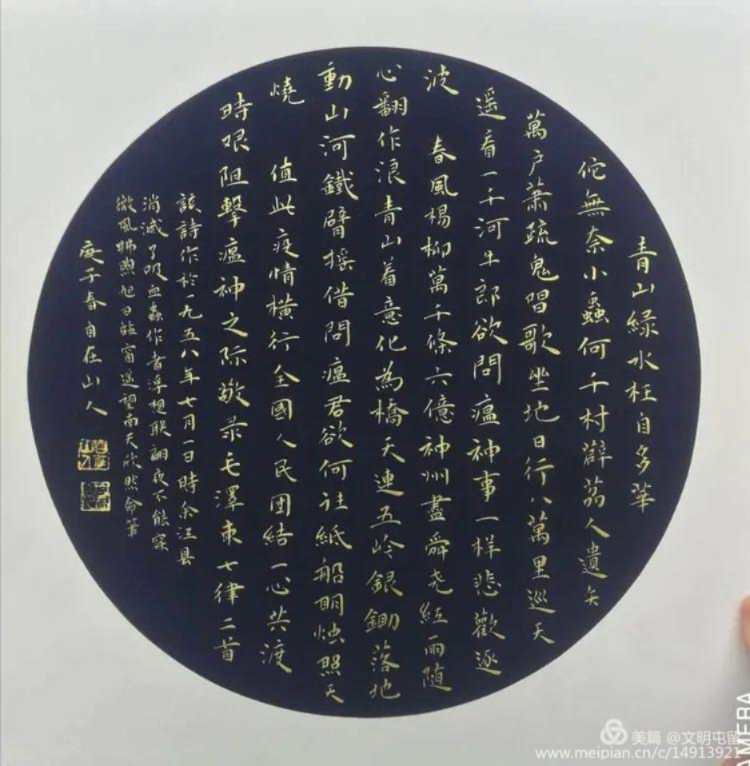 青山綠水枉自多華
佗無奈小蟲何千村薜荔人遺矢
萬戶蕭疏鬼唱歌坐地日行八萬里巡天
遥看一千河牛郎欲問瘟神事一樣悲歡逐
波 春風楊柳萬千條六億神州盡舜尧紅雨隨
心翻作浪青山着意化為橋天連五岭銀鋤落地
動山河鐵臂摇借問瘟君欲何往紙船明燭照天
燒 值此疫情橫行全國人民團結一心共渡
時艰阻擊瘟神之际敬录毛澤東七律二首
該詩作於一九五八年七月一日時余江县
消滅了吸血蟲作者浮想联翩夜不能寐
微風拂煦旭日臨窗遥望南天欣然命筆
庚子春自在山人
美篇 @文明屯留
www.meipian.cn/c/14913921
AMERA